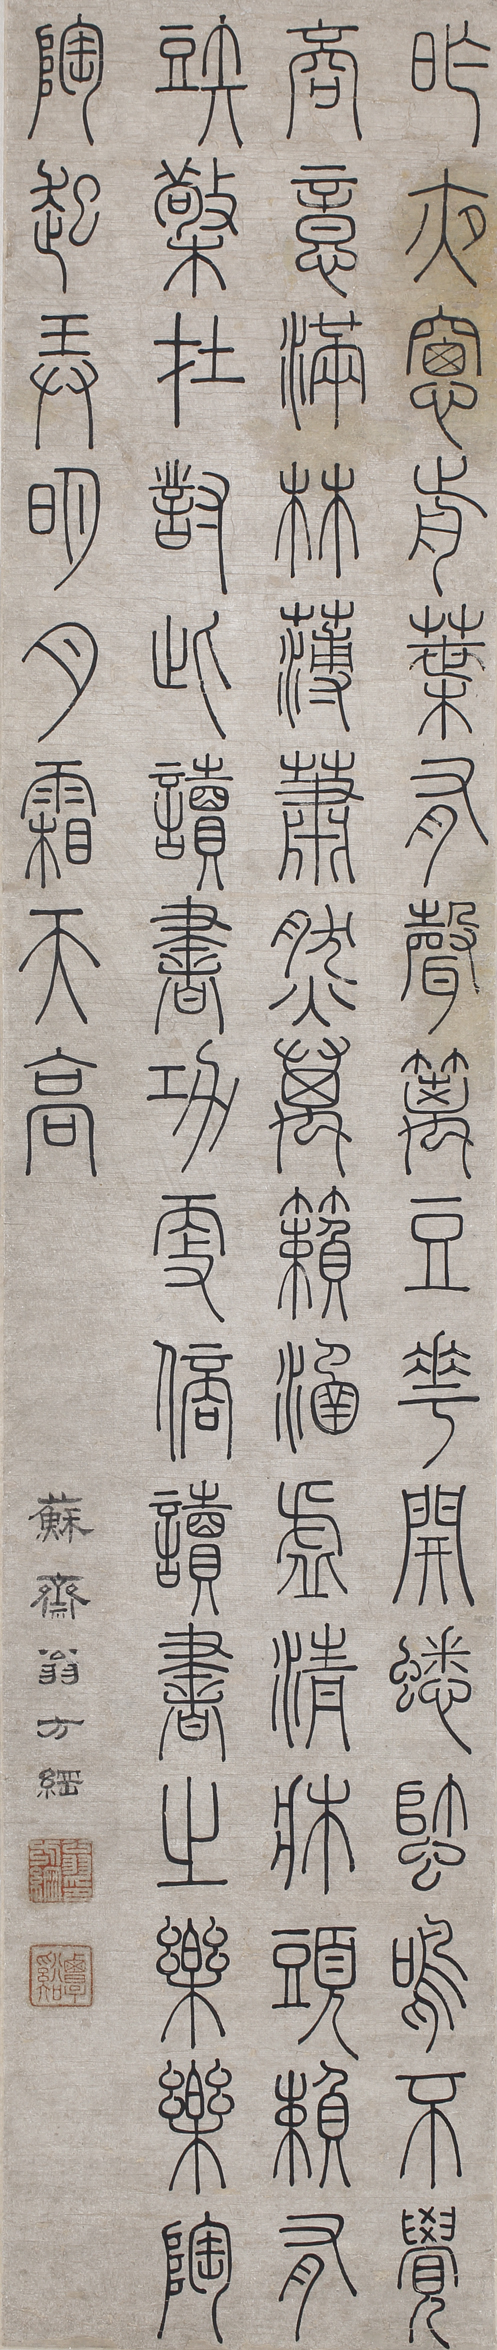 昨夜窻前葉有聲籬豆花開蟋蟀鳴不覺
商意滿林薄蕭然萬籟涵虛清牀頭賴有
短檠在對此讀書功更倍讀書之樂樂陶
陶起弄明月霜天高
蘇齋翁方綱
翁印方綱
覃谿